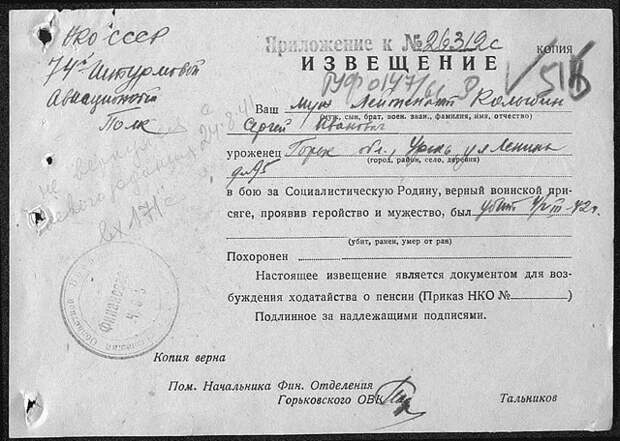 НКО СССР
74й Штурмовой
Авиационный
Полк
Приложение к № 26312с
КОПИЯ
ИЗВЕЩЕНИЕ
Ваш муж Лейтенант Колыбин
(муж, сын, брат, воен. зван., фамилия, имя, отчество)
Сергей Иванович
уроженец Горьк обл., Урень, ул Ленина
(город, район, село, деревня)
д. 95
в бою за Социалистическую Родину, верный воинской при-
сяге, проявив геройство и мужество, был убит 4/III-42г.
(убит, ранен, умер от ран)
Похоронен
Настоящее извещение является документом для воз-
буждения ходатайства о пенсии (Приказ НКО № )
Подлинное за надлежащими подписями.
не вернулся с
боевого задания 24.8.41
вх 171с
Копия верна
Пом. Начальника Фин. Отделения
Горьковского ОВК
Тальников